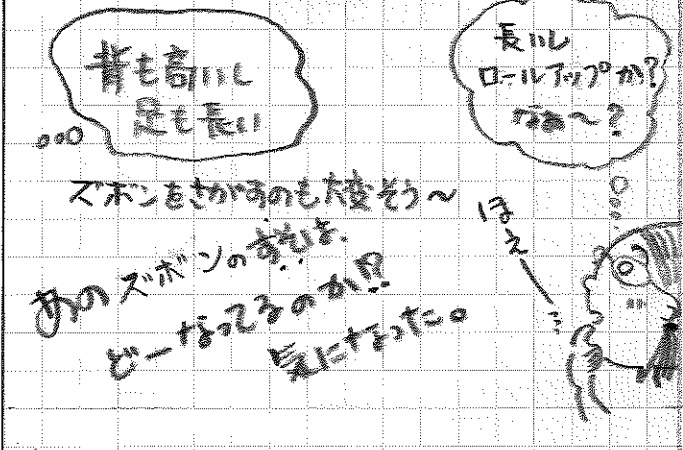 背も高いし
足も長い
長いし
ロールアップか?
なぁ〜?
ズボンをさがすのも大変そう〜
あのズボンのすそは、
どーなってるのか!?
気になった。
ほえー